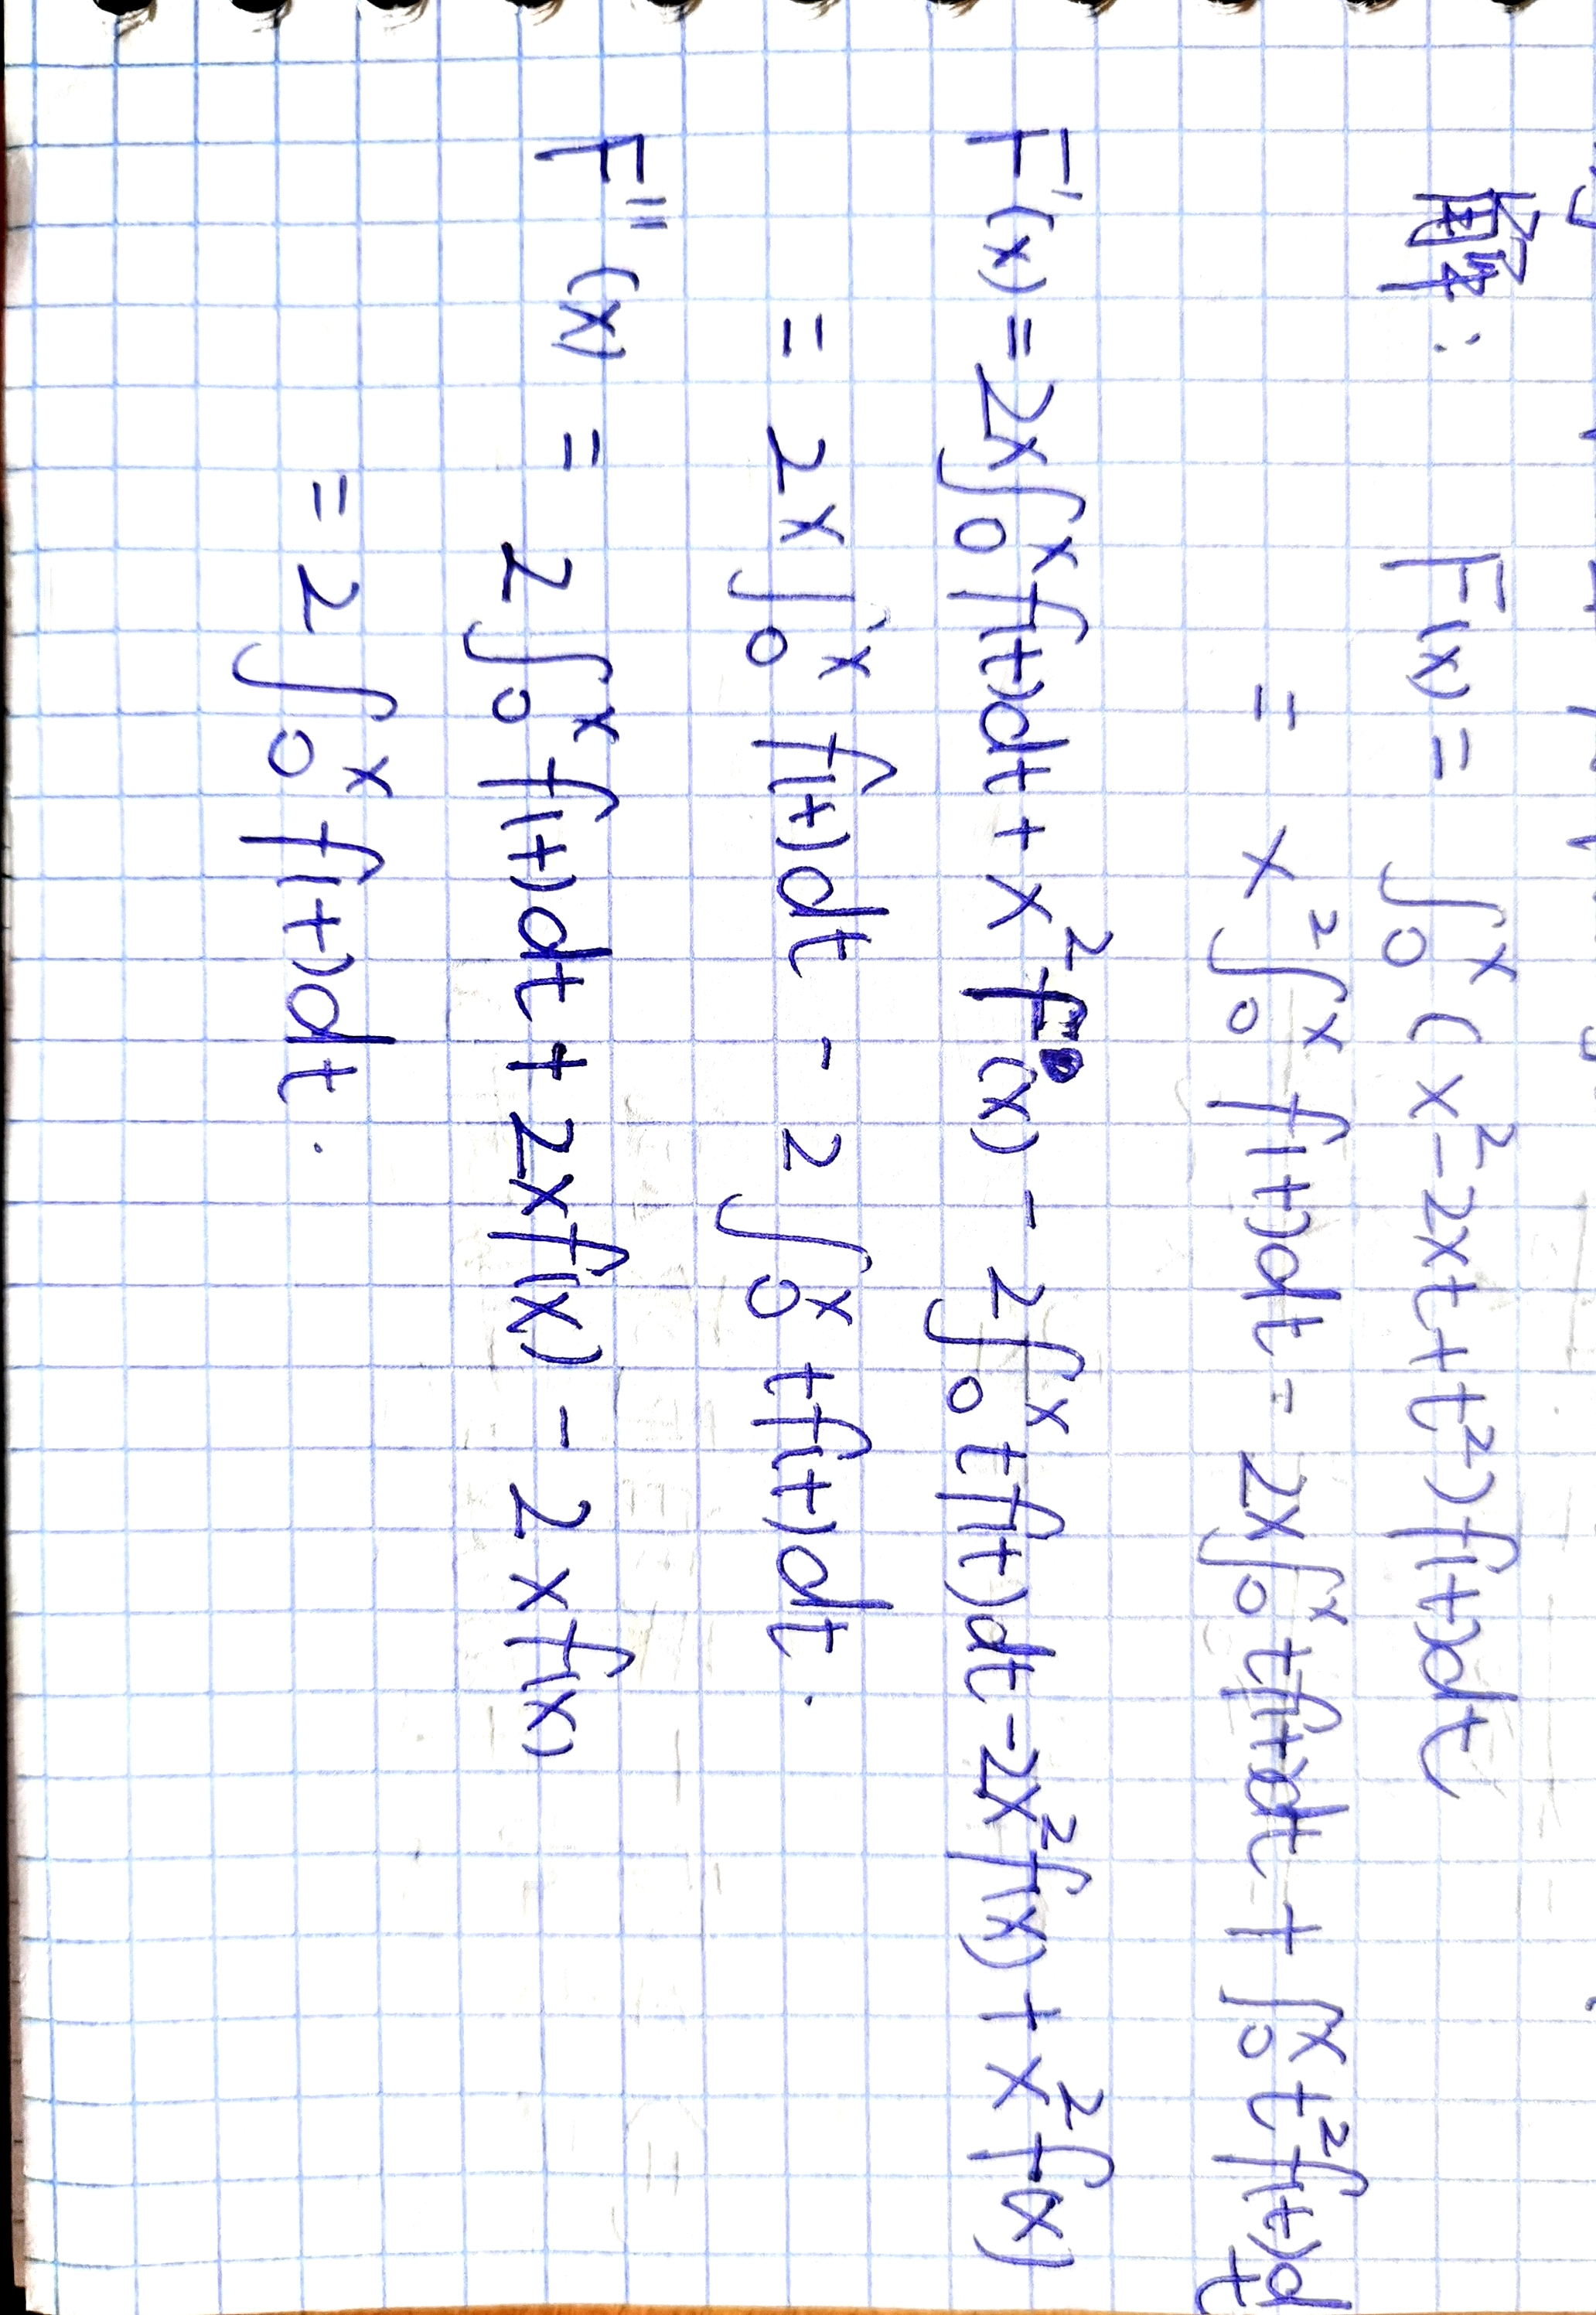 解: F(x) = ∫₀ˣ (x²-2xt+t²)f(t)dt
= x²∫₀ˣ f(t)dt - 2x∫₀ˣ tf(t)dt + ∫₀ˣ t²f(t)dt
F'(x) = 2x∫₀ˣ f(t)dt + x²f(x) - 2∫₀ˣ tf(t)dt - 2x²f(x) + x²f(x)
= 2x∫₀ˣ f(t)dt - 2∫₀ˣ tf(t)dt.
F''(x) = 2∫₀ˣ f(t)dt + 2xf(x) - 2xf(x)
= 2∫₀ˣ f(t)dt.